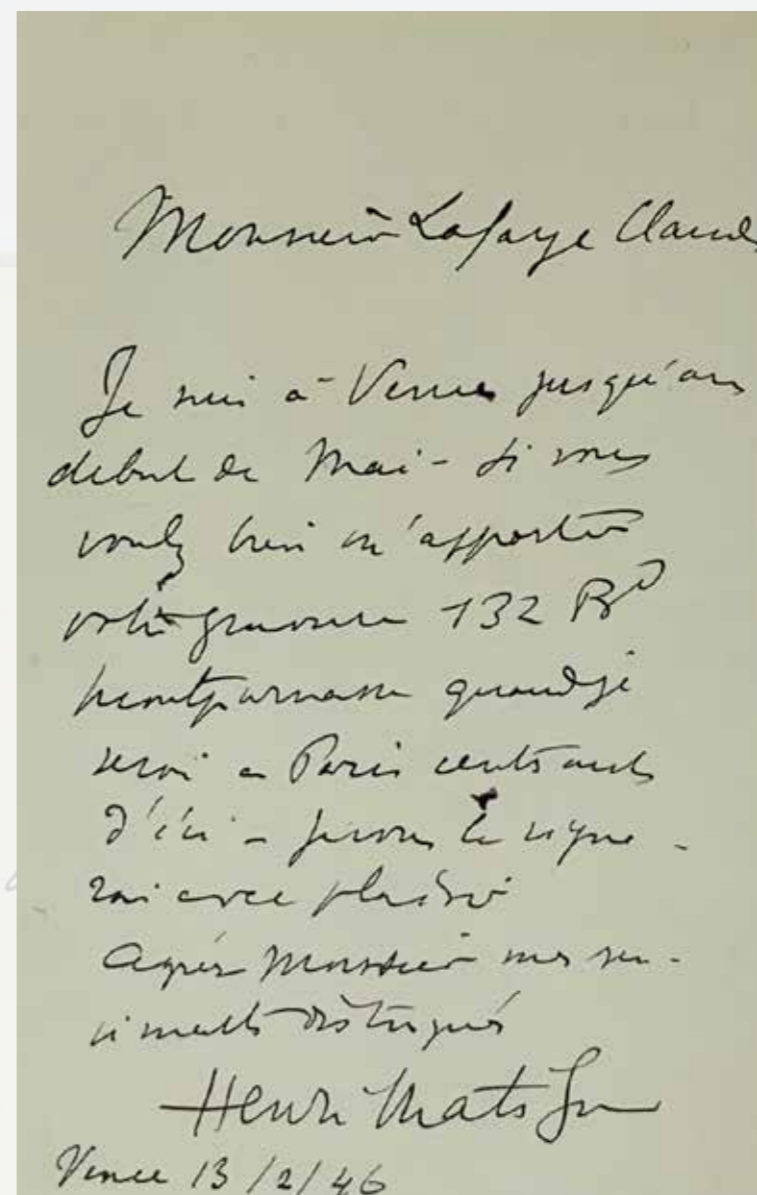 Monsieur Lafaye Claude
Je suis à Vence jusqu'au
debut de Mai - Si vous
voulez bien m'apporter
votre gravure 132 Bd
Montparnasse quand je
serai a Paris
d'ici - je vous la signe-
rai avec plaisir
Agréez Monsieur mes sen-
timents distingués
Henri Matisse
Vence 13/2/46